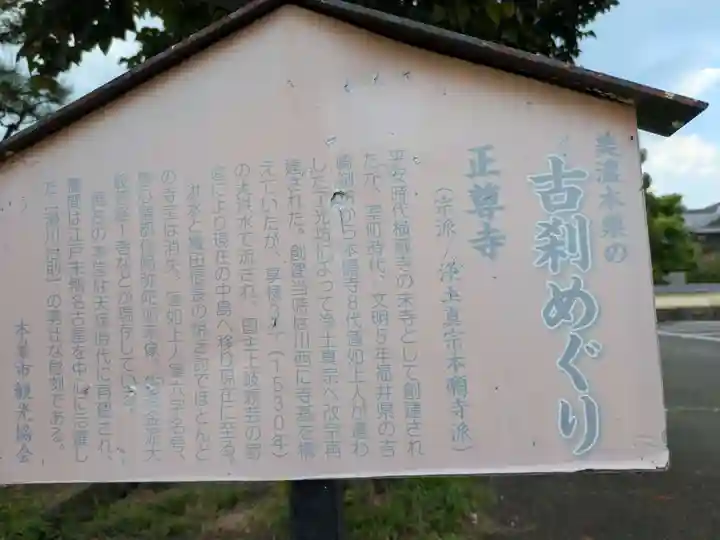 美濃本巣の
古刹めぐり
正尊寺
(宗派/浄土真宗本願寺派)
平安時代横蔵寺の末寺として創建され
たが、室町時代、文明5年福井県の吉
崎別院から本願寺8代蓮如上人が遣わ
した了光坊によって浄土真宗へ改宗再
建された。創建当徳は川西に寺基を構
えていたが、享禄3年(1530年)
の大洪水で流され、国主土岐頼芸の寄
進により現在の中島へ移り現在に至る。
洪水と織田信長の焼き討でほとんど
の寺宝は消失、蓮如上人筆六字名号、
が現存している。
現在の本堂は天保時代に再建され、
欄間は江戸末期名古屋を中心に活躍し
た「瀬川治助」の見事な彫刻である。
本巣市観光協会